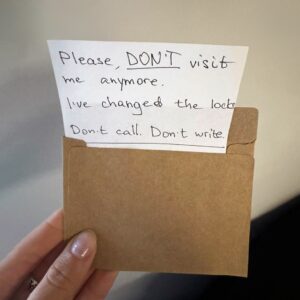 Please, DON'T visit
me anymore.
I've changed the locks
Don't call. Don't write.